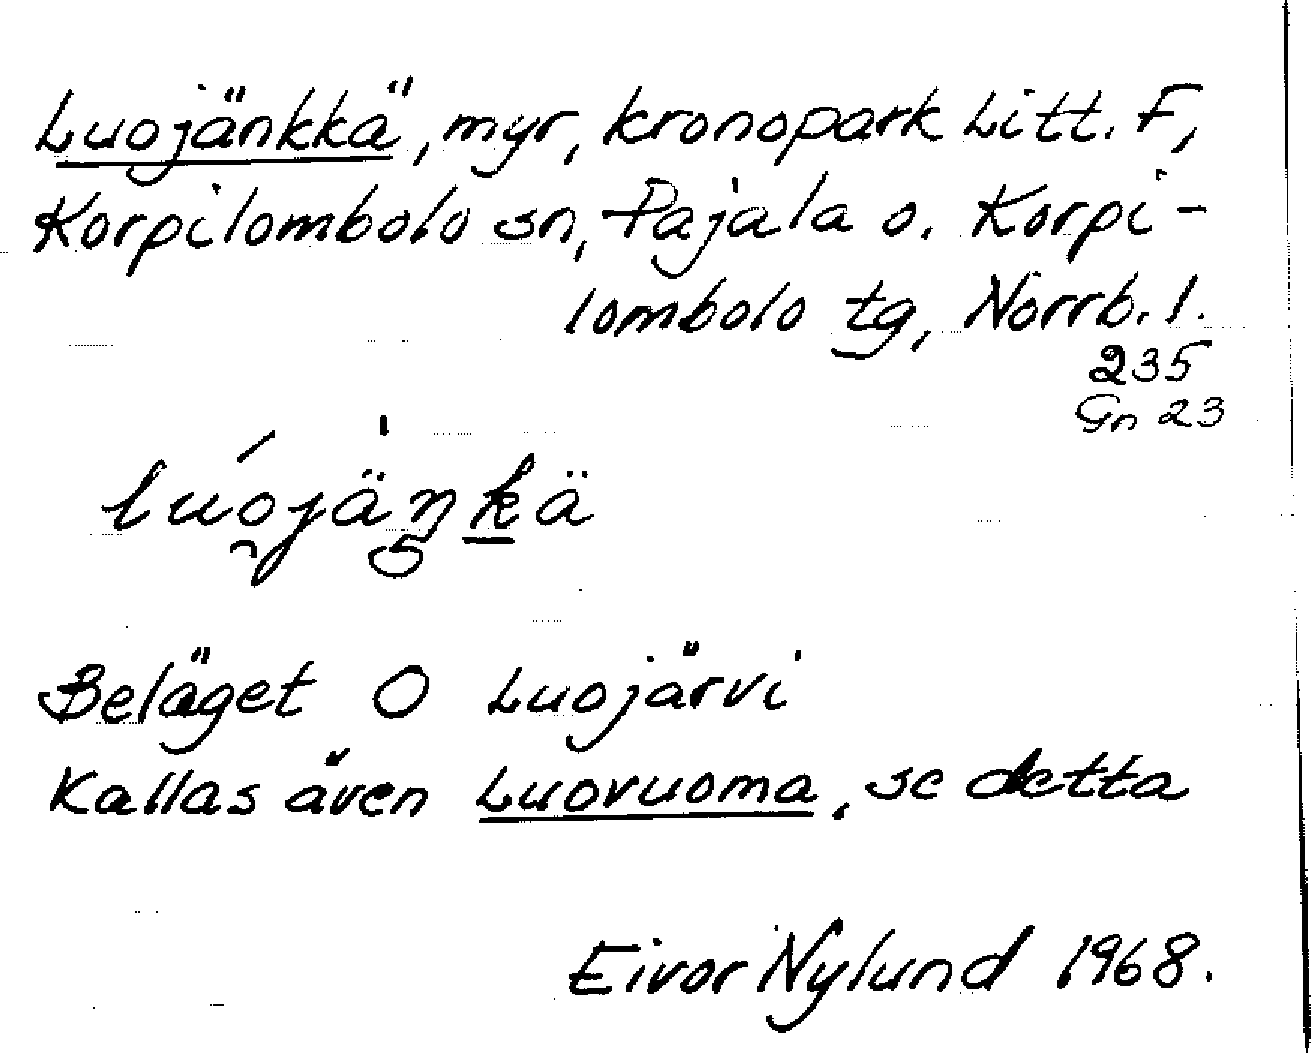 Luojänkkä, myr, kronopark Litt. F,
Korpilombolo sn, Pajala o. Korpi-
lombolo tg, Norrb. l.
235
Gn 23
luojäŋkä
Beläget O Luojärvi
Kallas även Luovuoma, se detta
Eivor Nylund 1968.